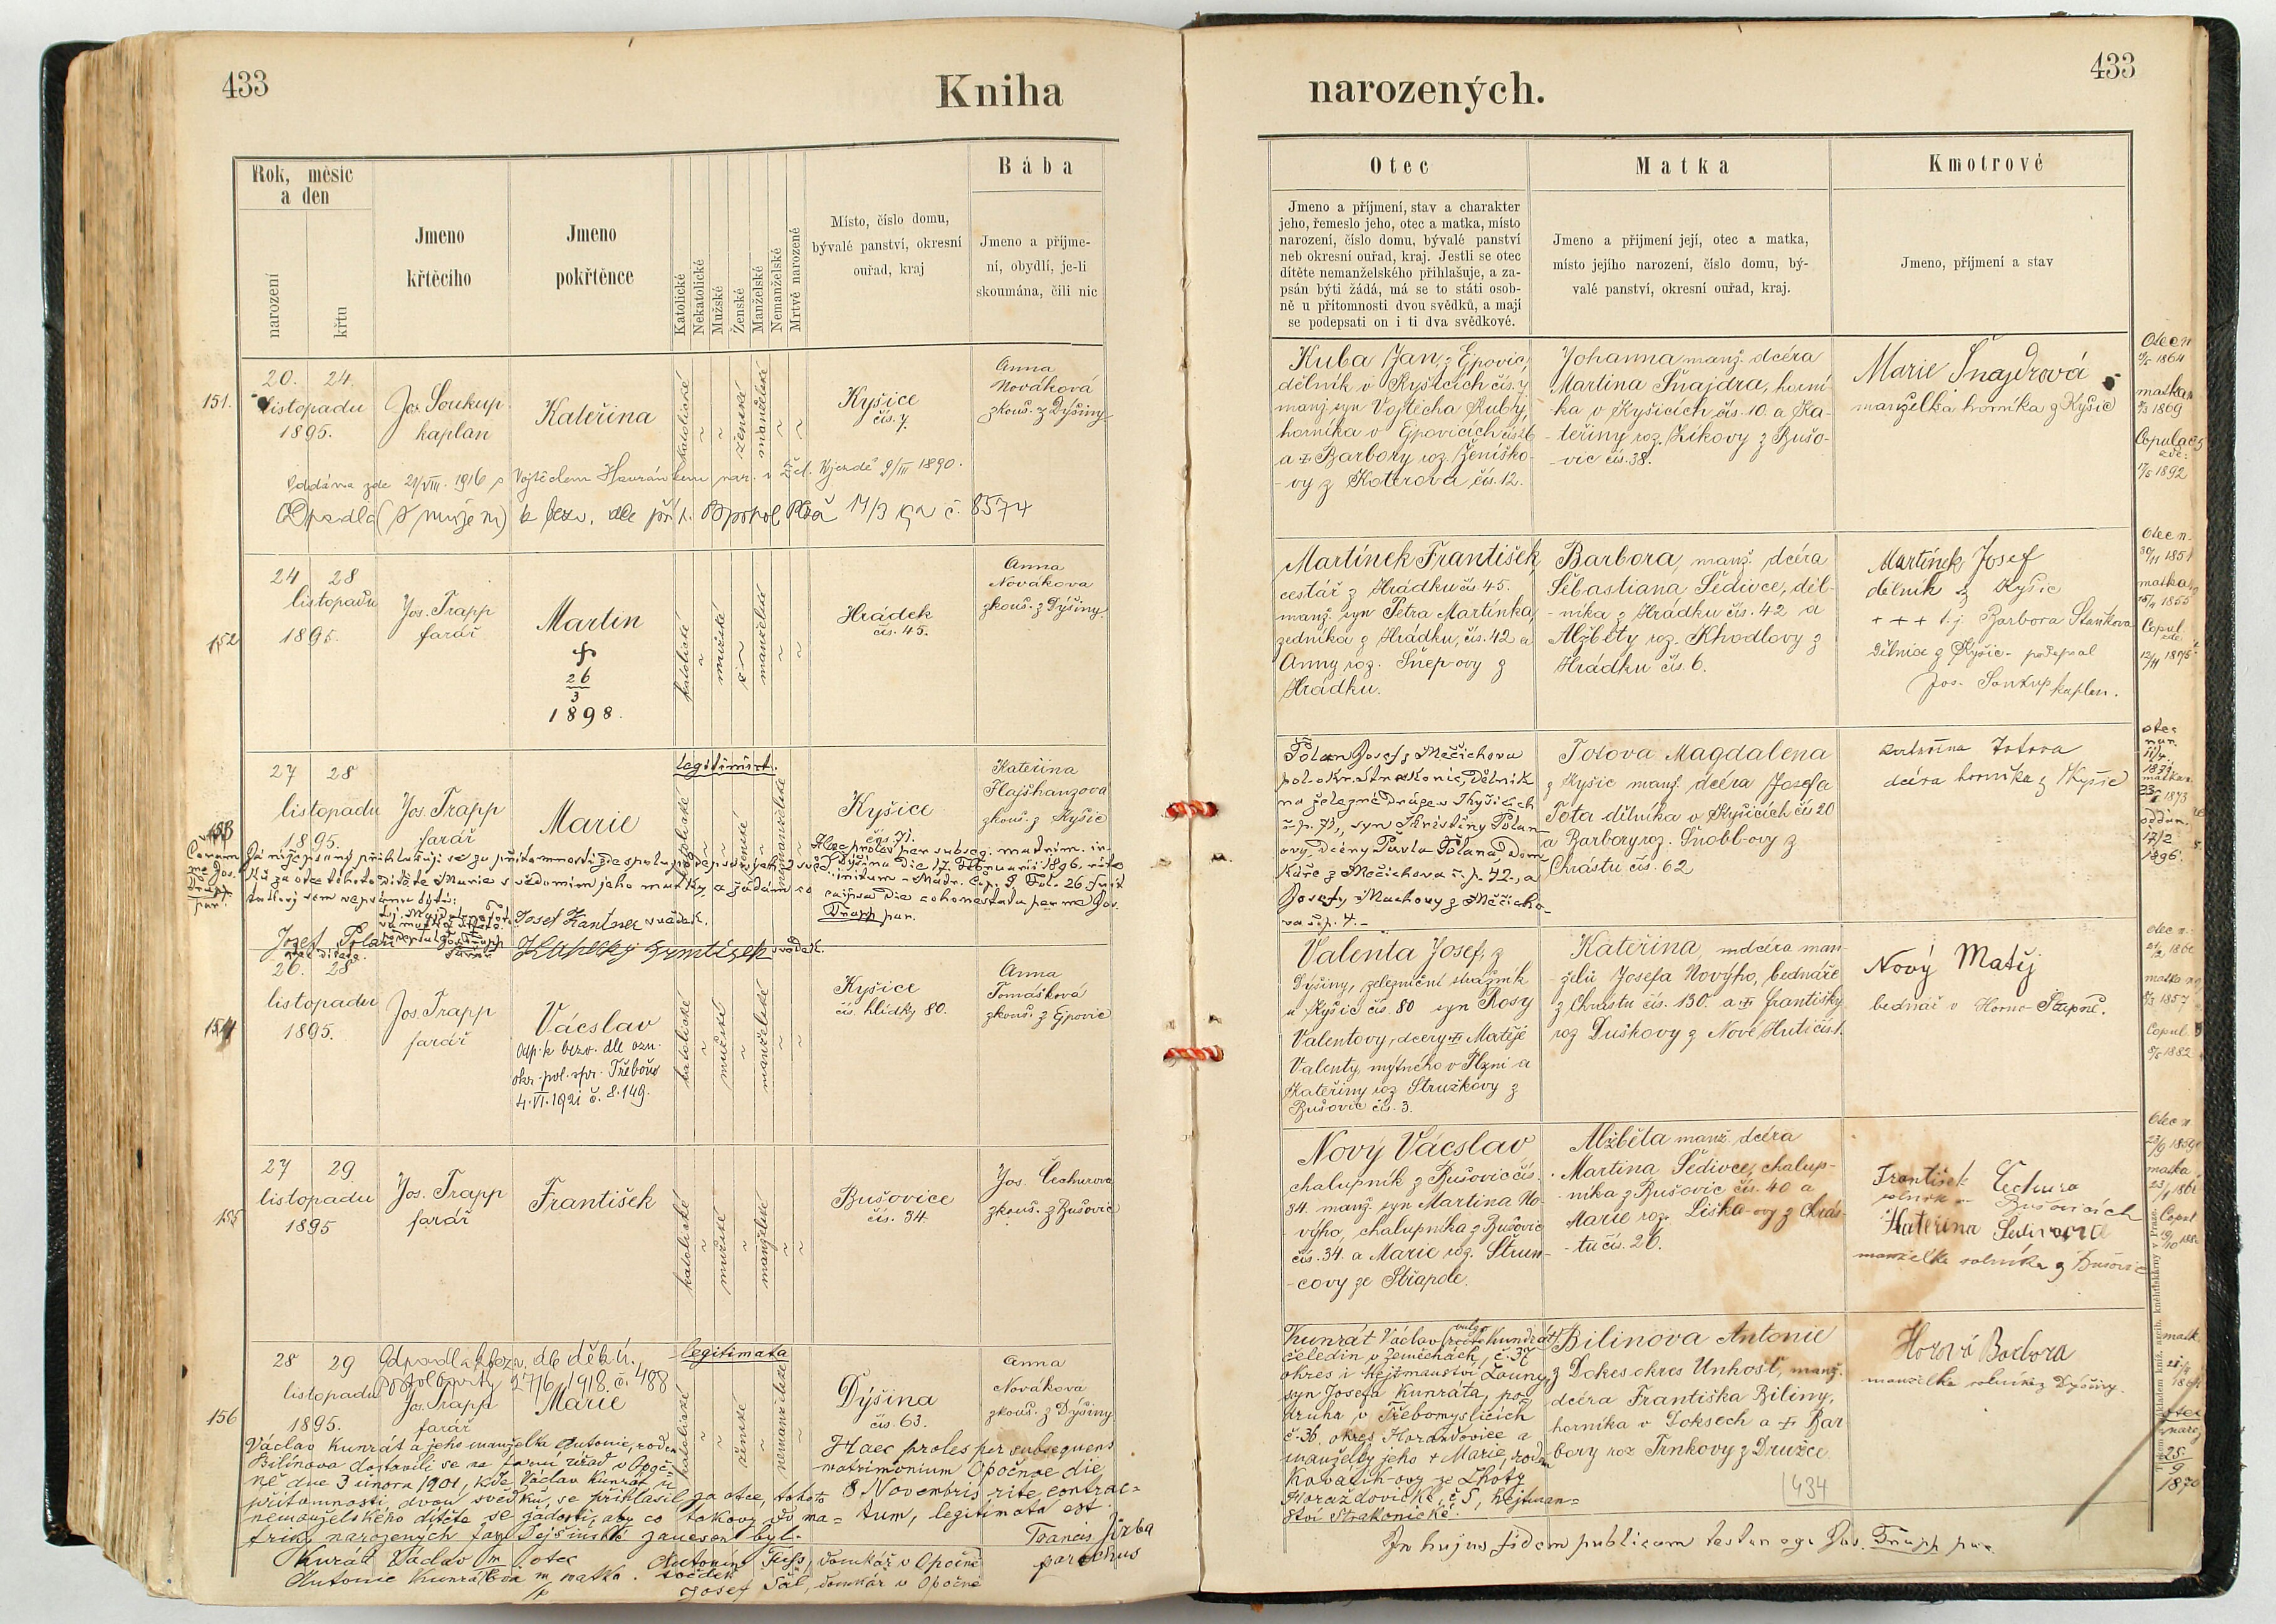 433
Kniha
narozených.
433
Rok, měsíc
a den
narození
křtu
Jmeno
křtěcího
Jmeno
pokřtěnce
Katolické
Nekatolické
Mužské
Ženské
Manželské
Nemanželské
Mrtvě narozené
Místo, číslo domu,
bývalé panství, okresní
ouřad, kraj
Bába
Jmeno a příjme-
ní, obydlí, je-li
skoumána, čili nic
Otec
Jmeno a příjmení, stav a charakter
jeho, řemeslo jeho, otec a matka, místo
narození, číslo domu, bývalé panství
neb okresní ouřad, kraj. Jestli se otec
dítěte nemanželského přihlašuje, a za-
psán býti žádá, má se to státi osob-
ně u přítomnosti dvou svědků, a mají
se podepsati on i ti dva svědkové.
Matka
Jmeno a příjmení její, otec a matka,
místo jejího narození, číslo domu, bý-
valé panství, okresní ouřad, kraj.
Kmotrové
Jmeno, příjmení a stav
151.
20. 24.
listopadu
1895.
Jos. Soukup
kaplan
Kateřina
katolické
ženské
manželské
Kyšice
čís. 7.
Anna
Nováková
zkouš. z Dýšiny
Oddána zde 21/VIII. 1916 s Vojtěchem Havránkem nar. v Újezdě 9/III 1890.
Odpadla (s mužem) k bezv. dle č. 8574
Kuba Jan, z Ejpovic,
dělník v Kyšicích čís. 7
manž. syn Vojtěcha Kuby,
horníka v Ejpovicích čís 26
a Barbory roz. Ženíško-
-vy z Koterova, čís. 12.
Johanna manž. dcéra
Martina Šnajdra, horní-
-ka v Kyšicích čís. 10. a Ka-
-teřiny roz. Zíkovy z Bušo-
-vic čís. 38.
Marie Šnajdrová
manželka horníka z Kyšic
Otec n
1864
matka n
1869
Copulace
1892
152
24 28
listopadu
1895.
Jos. Trapp
farář
Martin
26
3
1898.
katolické
mužské
manželské
Hrádek
čís. 45.
Anna
Nováková
zkouš. z Dýšiny
Martínek František,
cestář z Hrádku čís. 45.
manž. syn Petra Martínka,
zedníka z Hrádku, čís. 42 a
Anny roz. Šnep-ovy z
Hrádku.
Barbora, manž. dcéra
Šebastiana Šedivce, děl-
-níka z Hrádku čís. 42 a
Alžběty roz. Khodlovy z
Hrádku čís. 6.
Martínek Josef
dělník z Kyšic
+ + + t. j. Barbora Staňkova
dělnice z Kyšic - podepsal
Jos. Soukup kaplan.
Otec n.
30/11 1851
matka
1855
Copul.
12/11 1875
153
27 28
listopadu
1895.
Jos. Trapp
farář
Marie
legitimirt.
katolické
ženské
nemanželské
Kyšice
čís. 71.
Kateřina
Flajšhanzova
zkouš. z Kyšic
Coram
me Jos.
Trapp
far.
Já nížepsaný přihlašuji se za přítomnosti zde spolupodepsaných 2 svěd-
ků za otce tohoto dítěte Marie s vědomím jeho matky, a žádám co
takový sem zapsánu býti:
Josef Polan
otec dítěte.
Josef Kantner svědek.
svědek.
Haec proles per subseq. matrim. in-
Dýšina die 17. Februarii 1896. rite
initum - Matr. Cop. 9. Fol. 26. fuit
eadem die cohonestata per me Jos.
Trapp par.
Polan Josef z Mečichova
pol. okr. Strakonic, dělník
na železné dráze v Kyšicích
č. p. 71, syn Kristiny Polan-
ovy, dcéry Pavla Polana, Dom-
káře z Mečichova č. p. 42., a
Josefy Machovy z Mečicho-
va č. p. 4.-
Totova Magdalena
z Kyšic manž. dcéra Josefa
Tota dělníka v Kyšicích čís 20
a Barbory roz. Šnobl-ovy z
Chrástu čís. 62
Kateřina Totova
dcéra horníka z Kyšic
otec
nar.
matka n.
1873
oddán.
17/2
1896.
154
26. 28
listopadu
1895.
Jos. Trapp
farář
Václav
odp. k bezv. dle ozn.
okr. pol. spr. Třeboň
4.VI.1921 č. 8.149.
katolické
mužské
manželské
Kyšice
čís. hlídky 80.
Anna
Tomášková
zkouš. z Ejpovic
Valenta Josef, z
Dýšiny, železniční strážník
u Kyšic čís. 80 syn Rosy
Valentovy, dcery Matěje
Valenty, mýtného v Plzni a
Kateřiny roz Stružkovy z
Bušovic čís. 3.
Kateřina, dcéra man-
-želů Josefa Nového, bednáře
z Chrástu čís. 130. a Františky
roz Duškovy z Nové Huti čís 1.
Nový Matěj
bednář v Horno-Stupně.
otec n.
matka n.
1857
Copul
1882
155
27 29
listopadu
1895
Jos. Trapp
farář
František
katolické
mužské
manželské
Bušovice
čís. 34.
Jos. Čechurova
zkouš. z Bušovic
Nový Václav
chalupník z Bušovic čís.
34. manž. syn Martina No-
-vého, chalupníka z Bušovic
čís. 34. a Marie roz. Štrun-
-covy ze Střapole.
Alžběta manž. dcéra
Martina Šedivce, chalup-
-níka z Bušovic čís. 40 a
Marie roz. Liška-ovy z Chrás-
-tu čís. 26.
František Čechura
rolník v Bušovicích
Kateřina Šedivcova
manželka rolníka z Bušovic
Otec n
matka
Copul
156
28 29
listopadu
1895.
Odpadla k bezv. dle děk. ú.
Postoloprty 27/6 1918. č. 488
Jos. Trapp
farář
Marie
legitimata
katolické
ženské
nemanželské
Dýšina
čís. 63.
Anna
Nováková
zkouš. z Dýšiny
Václav Kunrát a jeho manželka Antonie, rozená
Bilinova dostavili se na farní úřad v Opoč-
ně dne 3 února 1901, kde Václav Kunrát u
přítomnosti dvou svědků, se přihlásil za otce, tohoto
nemanželského dítěte se žádostí, aby co takový do ma-
triky narozených fary Dejšinské zanesen byl.
Kunrát Václav otec
Antonie Kunrátova matka.
Antonín Fuss, domkář v Opočně
svědek
Josef domkář v Opočně
Haec proles per subsequens
matrimonium Opočnae die
8 Novembris rite contrac-
tum, legitimata est.
Francis. Jirba
parochus
Kunrát Václav vulgo Kundrát
čeledín v Zeměchách, č. 37
okres i hejtmanství Louny,
syn Josefa Kunráta, po-
druha v Třebomyslicích
č. 36, okres Horažďovice a
manželky jeho + Marie, rozen
Kovářík-ovy ze Lhoty
Horažďovické, č 5, hejtman-
ství Strakonické.
Bilinova Antonie
z Dokes okres Unhošť, manž.
dcéra Františka Biliny,
horníka v Doksech a Bar-
bory roz Trnkovy z Družce
434
Horová Barbora
manželka rolníka z Dýšiny.
matk.
otec
naroz
25
9
1870
In hujus fidem publicam testor ego Jos. Trapp par.